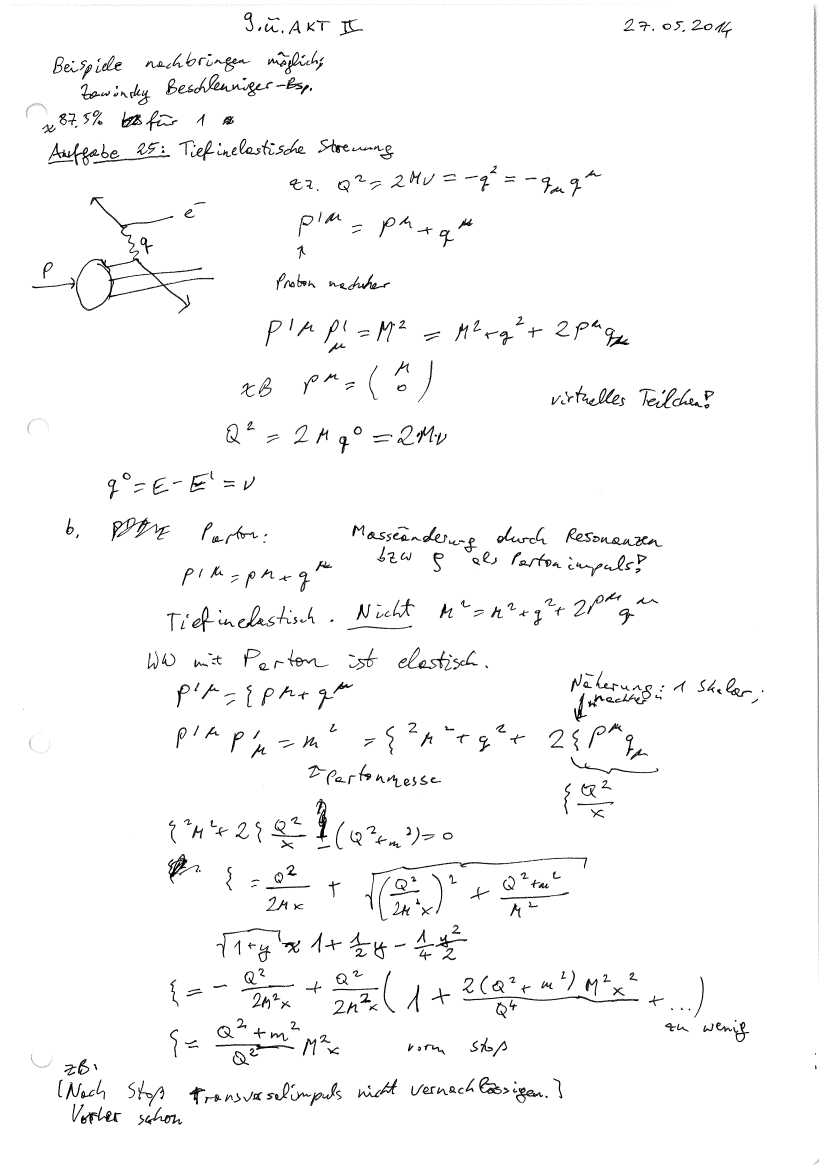 9. Ü. AKT II 27.05.2014
Beispiele nachbringen möglich,
Beschleuniger-Bsp.
87.5% für 1
Aufgabe 25: Tiefinelastische Streuung
zz. Q² = 2Mν = -q² = -q_μ q^μ
e⁻
q
P
P'^μ = P^μ + q^μ
↑
Proton nachher
P'^μ P'_μ = M² = M² + q² + 2P^μ q_μ
zB P^μ = (M 0)
virtuelles Teilchen!
Q² = 2M q⁰ = 2Mν
q⁰ = E - E' = ν
b, Parton:
Masseänderung durch Resonanzen
bzw ξ als Partonimpuls!
P'^μ = P^μ + q^μ
Tiefinelastisch. Nicht M² = M² + q² + 2P^μ q^μ
WW mit Parton ist elastisch.
P'^μ = ξ P^μ + q^μ
Näherung: 1 Skalar,
P'^μ P'_μ = m² = ξ² M² + q² + 2 ξ P^μ q_μ
↑ Partonmasse
ξ Q²/x
ξ² M² + 2 ξ Q²/x - (Q² + m²) = 0
ξ = Q²/2Mx + √((Q²/2M²x)² + (Q² + m²)/M²)
√(1+y) ≈ 1 + 1/2 y - 1/4 y²/2
ξ = - Q²/2M²x + Q²/2M²x (1 + 2(Q² + m²) M²x²/Q⁴ + ...)
zu wenig
ξ = (Q² + m²)/Q² M²x vorm Stoß
zB:
[Nach Stoß Transversalimpuls nicht vernachlässigen.]
Vorher schon